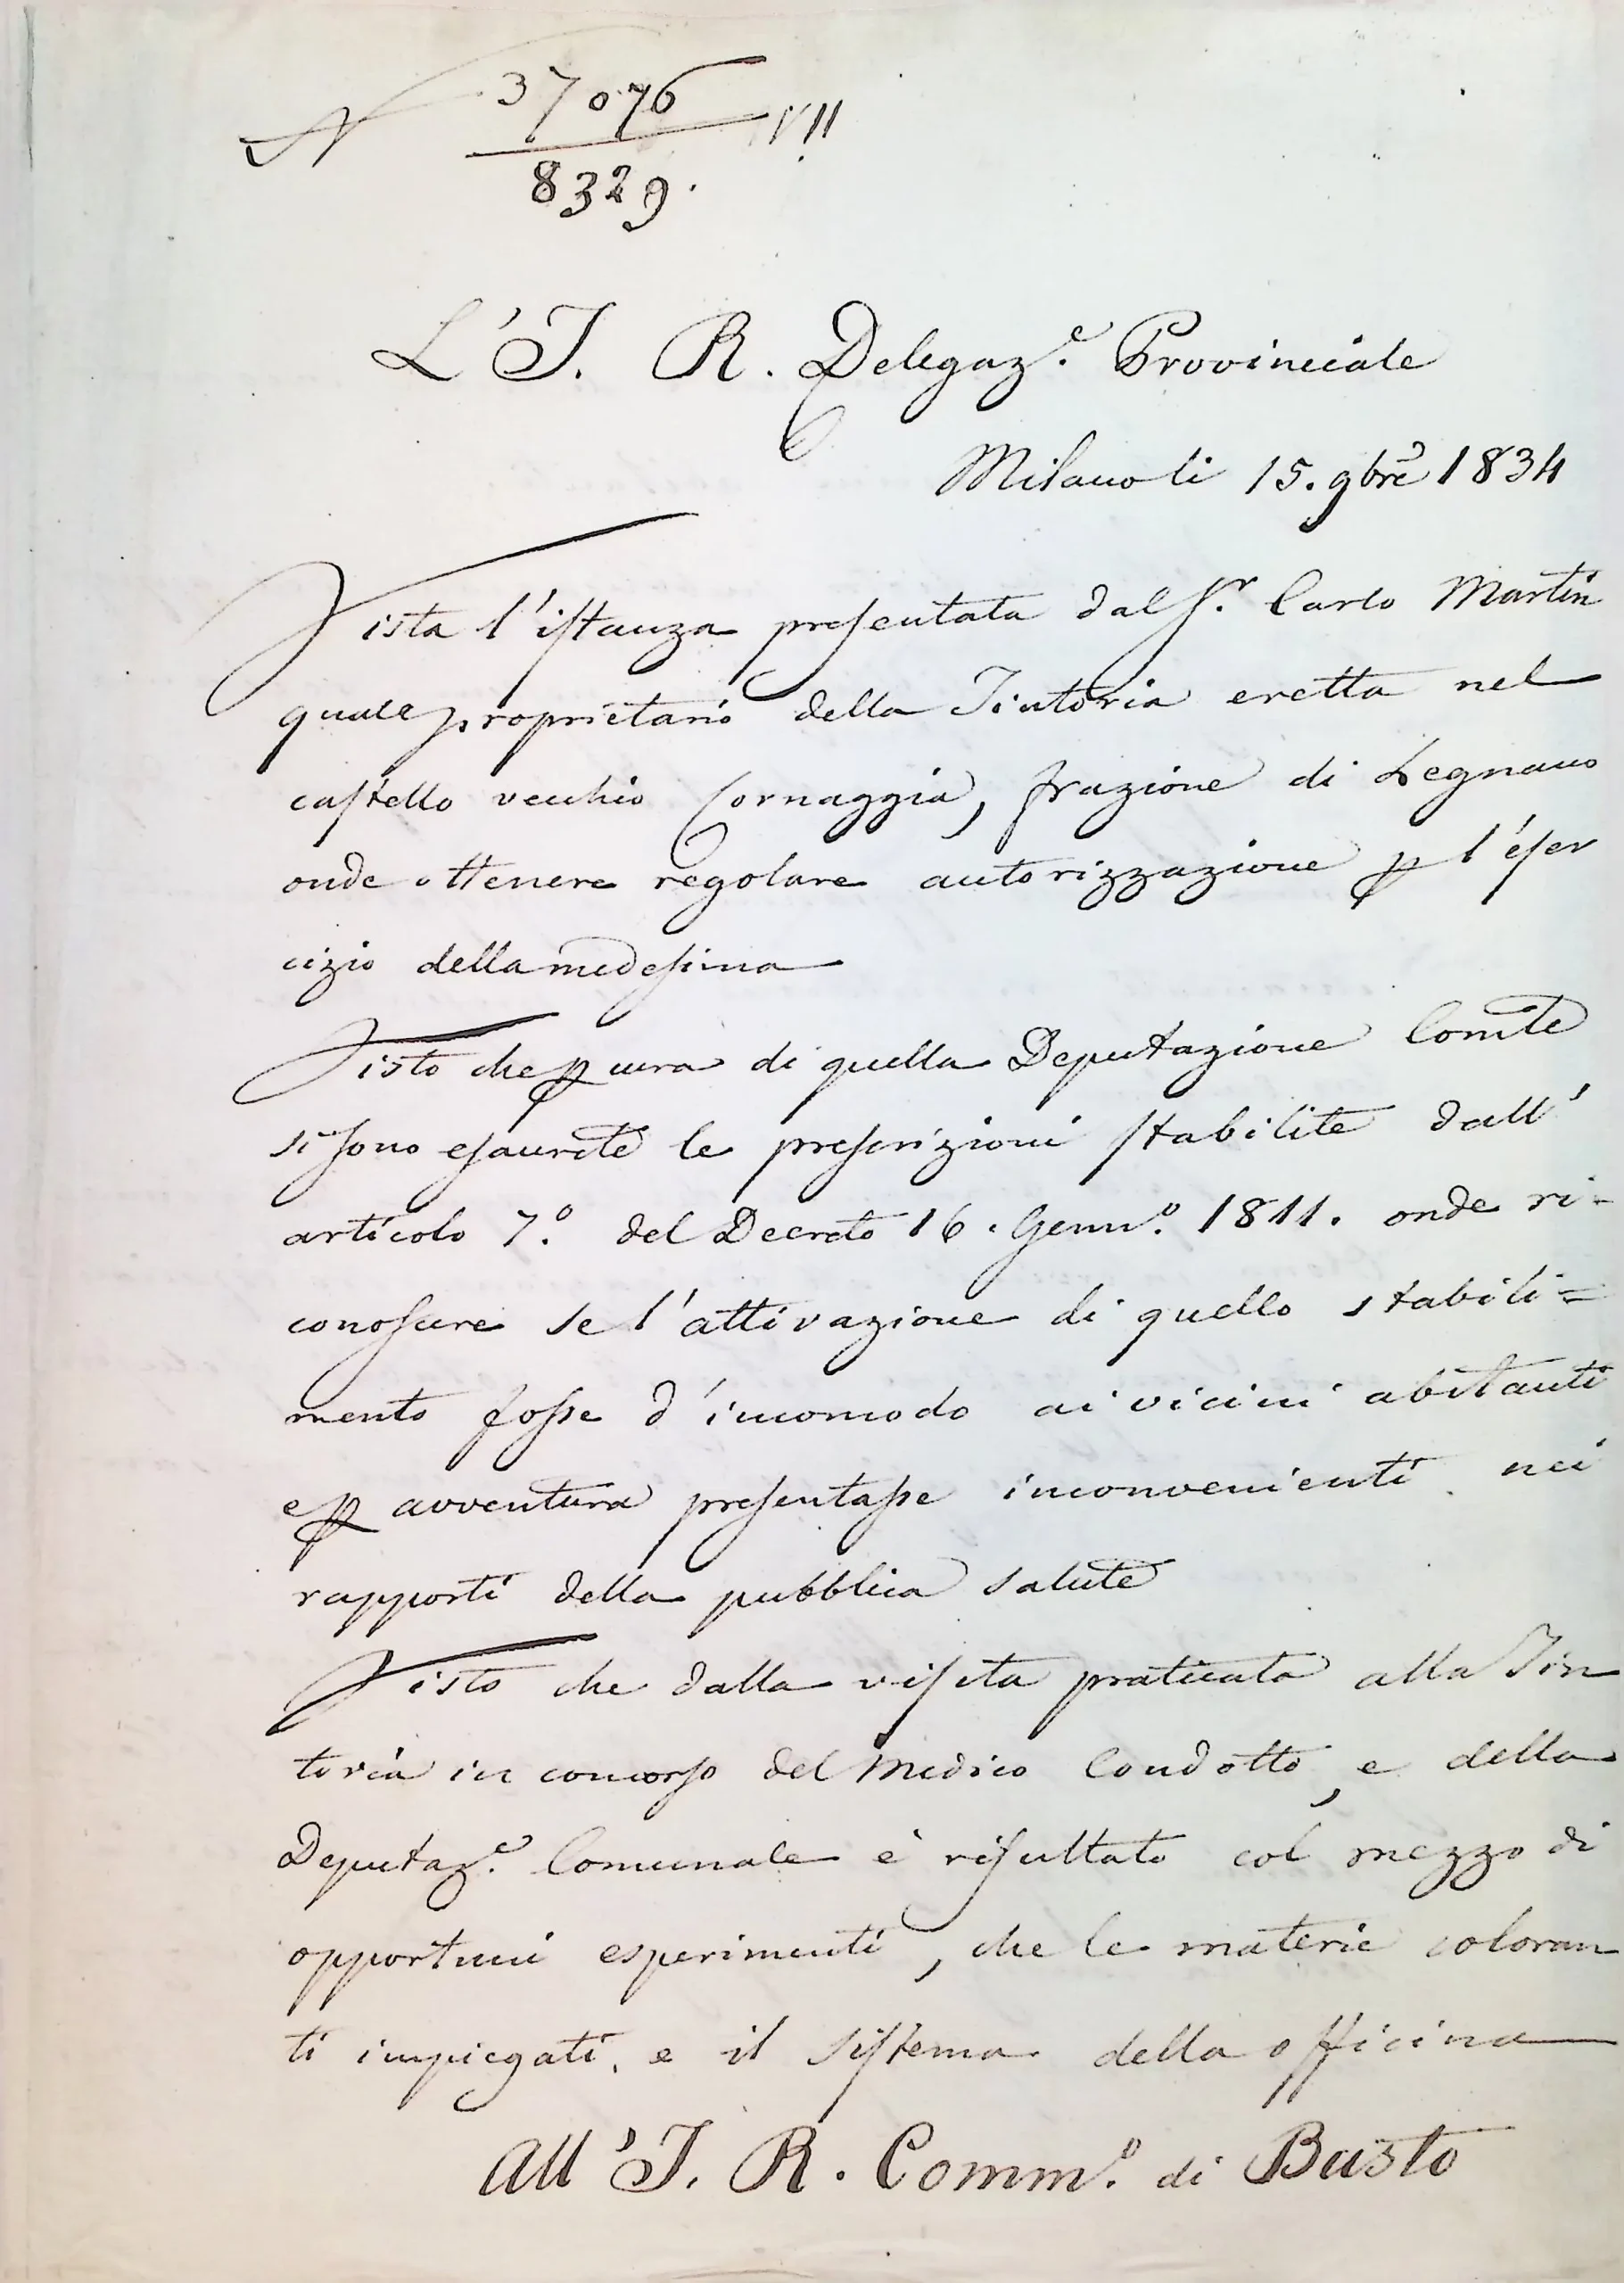 N 37076 VII
8329.
L'I. R. Delegaz.e Provinciale
Milano li 15. 9bre 1834
Vista l'istanza presentata dal Sr. Carlo Martin
quale proprietario della Tintoria eretta nel
castello vecchio Cornaggia, frazione di Legnano
onde ottenere regolare autorizzazione p l'eser
cizio della medesima
Visto che p cura di quella Deputazione Comle
si sono esaurite le prescrizioni stabilite dall'
articolo 7.o del Decreto 16. Genn.o 1811. onde ri-
conoscere se l'attivazione di quello stabili=
mento fosse d'incomodo ai vicini abitanti
e p avventura presentasse inconvenienti nei
rapporti della pubblica salute
Visto che dalla visita praticata alla Tin
toria in concorso del Medico Condotto, e della
Deputaz.e Comunale è risultato col mezzo di
opportuni esperimenti, che le materie coloran
ti impiegati, e il sistema della officina
All'I. R. Comm.o di Busto